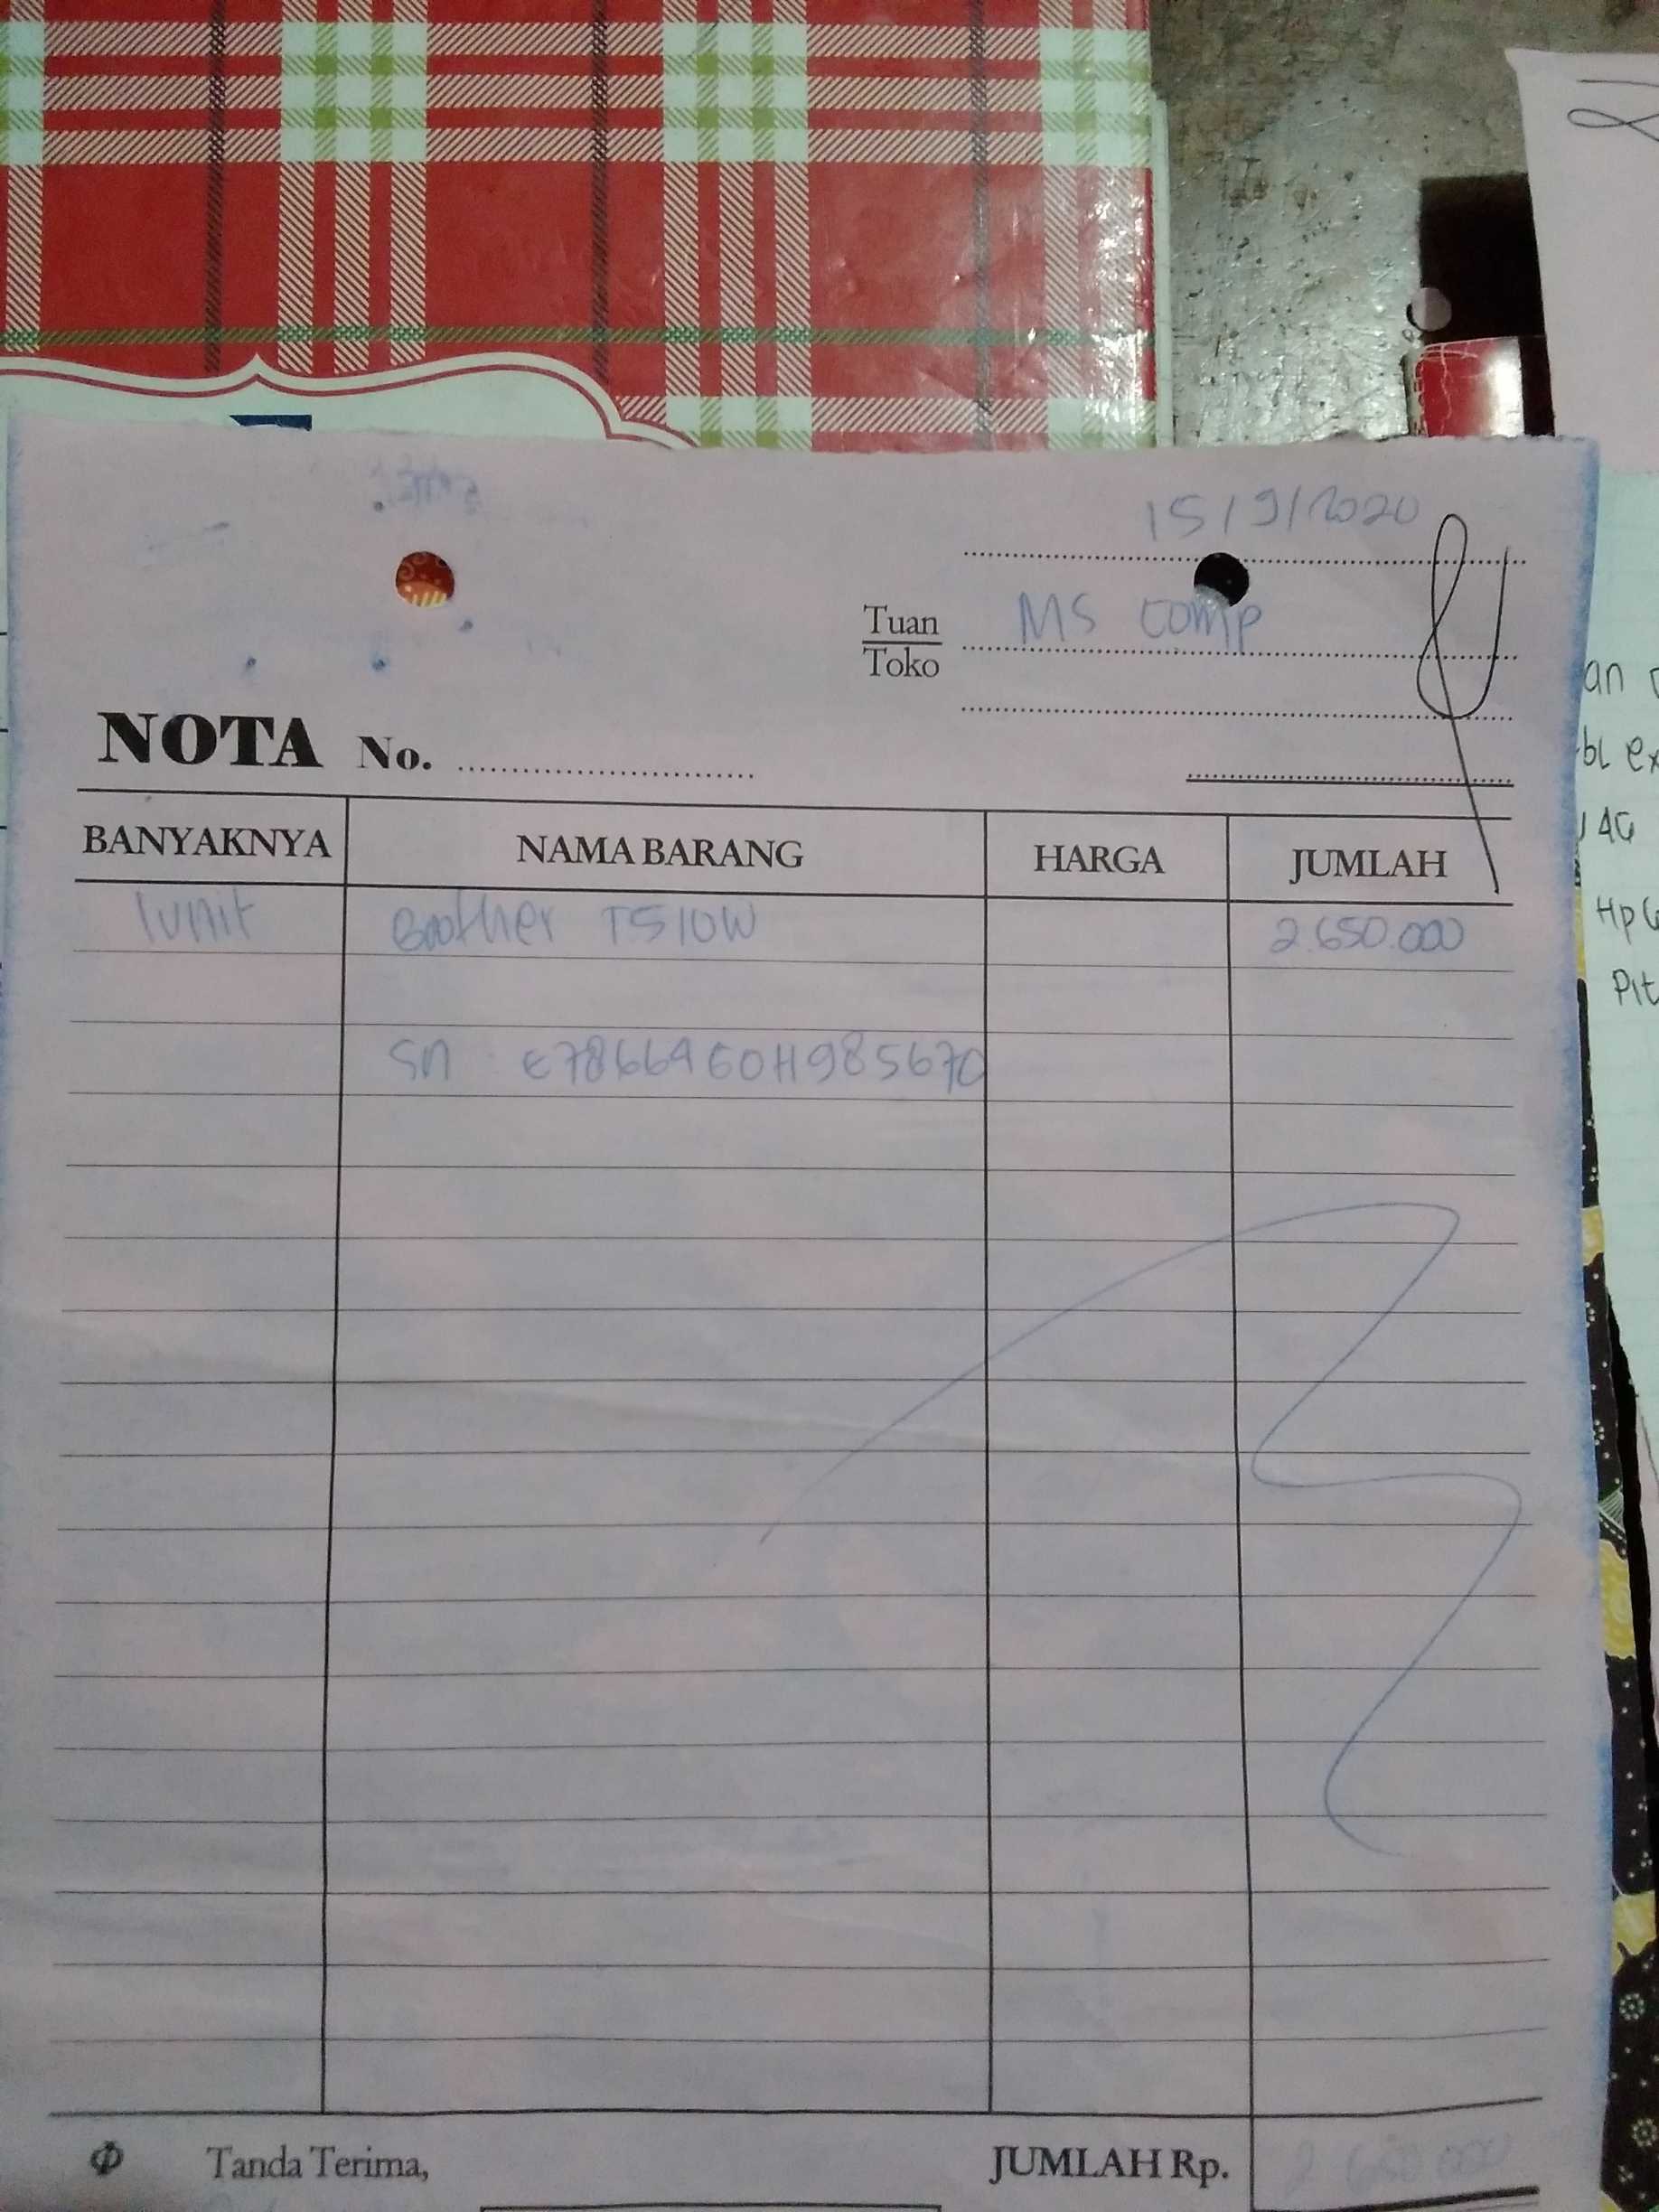 15/9/2020
Tuan
Toko
MS comp
NOTA No.
BANYAKNYA NAMA BARANG HARGA JUMLAH
1 unit Brother T510W 2.650.000
SN
Tanda Terima, JUMLAH Rp. 2.650.000
an
bl ex
4G
Hp
Pit